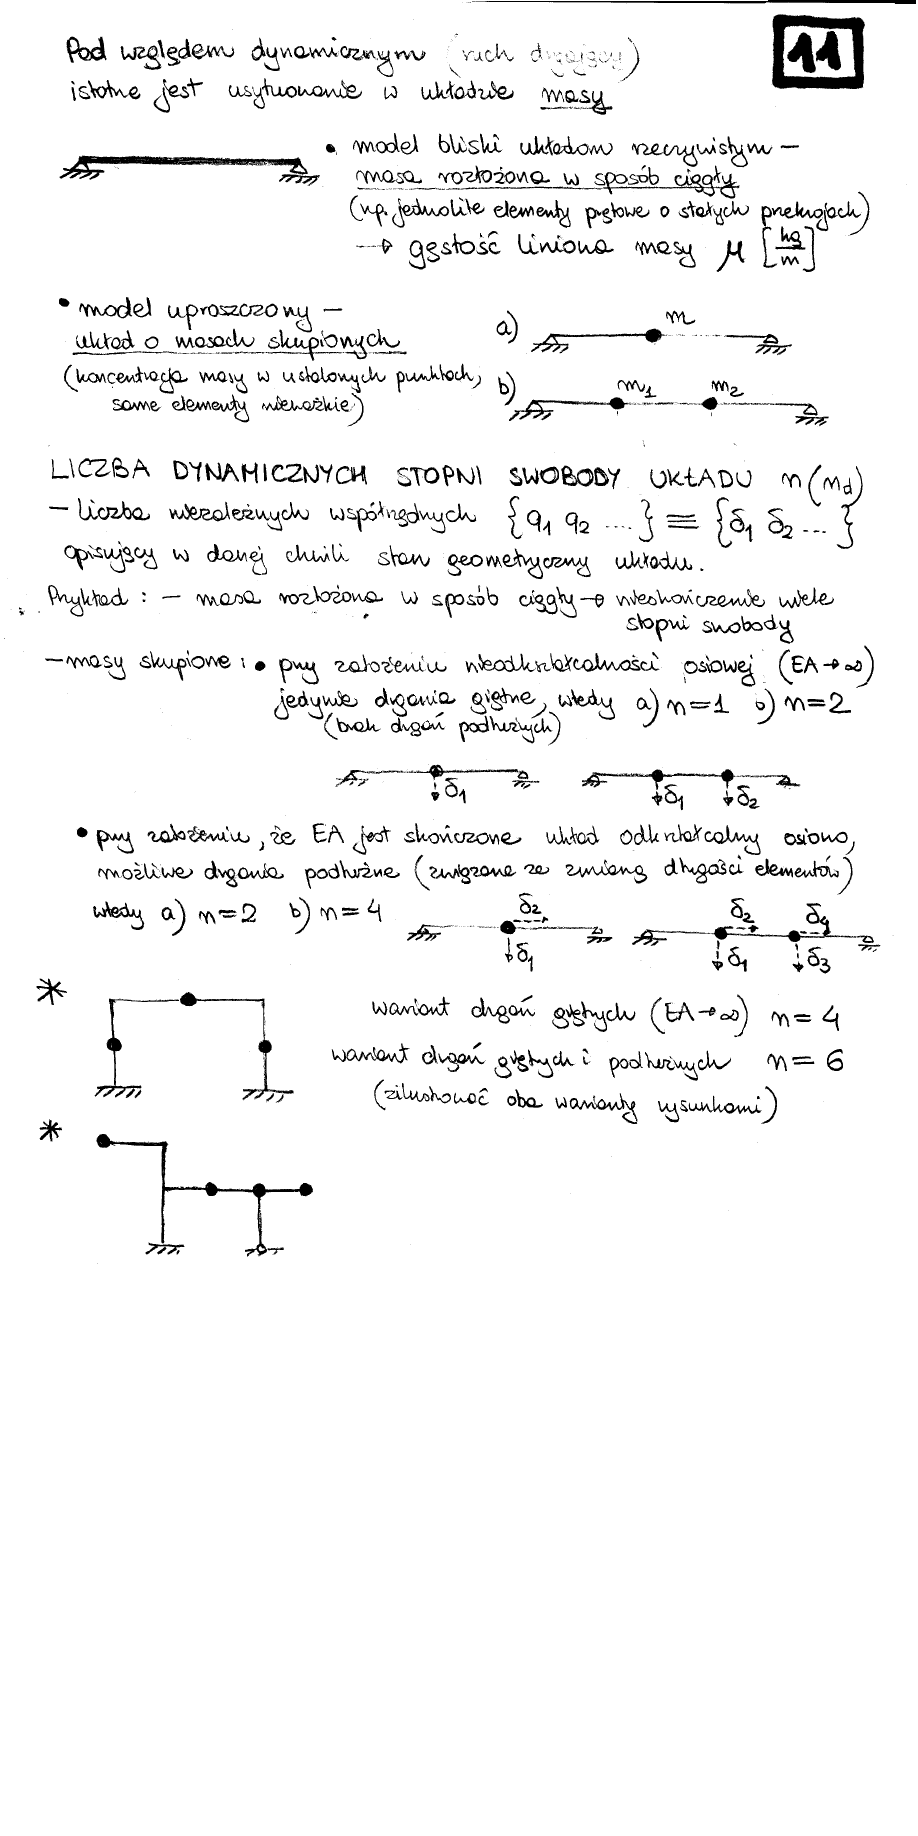 11
Pod względem dynamicznym (ruch drgający)
istotne jest usytuowanie w układzie masy
• model bliski układom rzeczywistym –
masa rozłożona w sposób ciągły
(np. jednolite elementy prętowe o stałych przekrojach)
→ gęstość liniowa masy μ [kg/m]
• model uproszczony –
układ o masach skupionych
(koncentracja masy w ustalonych punktach,
same elementy nieważkie)
a) m
b) m1 m2
LICZBA DYNAMICZNYCH STOPNI SWOBODY UKŁADU n (nd)
– liczba niezależnych współrzędnych {q1 q2 ....} ≡ {δ1 δ2 ...}
opisujący w danej chwili stan geometryczny układu.
Przykład : – masa rozłożona w sposób ciągły → nieskończenie wiele
stopni swobody
– masy skupione : • przy założeniu nieodkształcalności osiowej (EA→∞)
jedynie drgania giętne, wtedy a) n=1 b) n=2
(brak drgań podłużnych)
δ1 δ1 δ2
• przy założeniu, że EA jest skończone układ odkształcalny osiowo,
możliwe drgania podłużne (związane ze zmianą długości elementów)
wtedy a) n=2 b) n=4
δ2 δ2 δ4
δ1 δ1 δ3
* wariant drgań giętych (EA→∞) n=4
wariant drgań giętych i podłużnych n=6
(zilustrować oba warianty rysunkami)
*